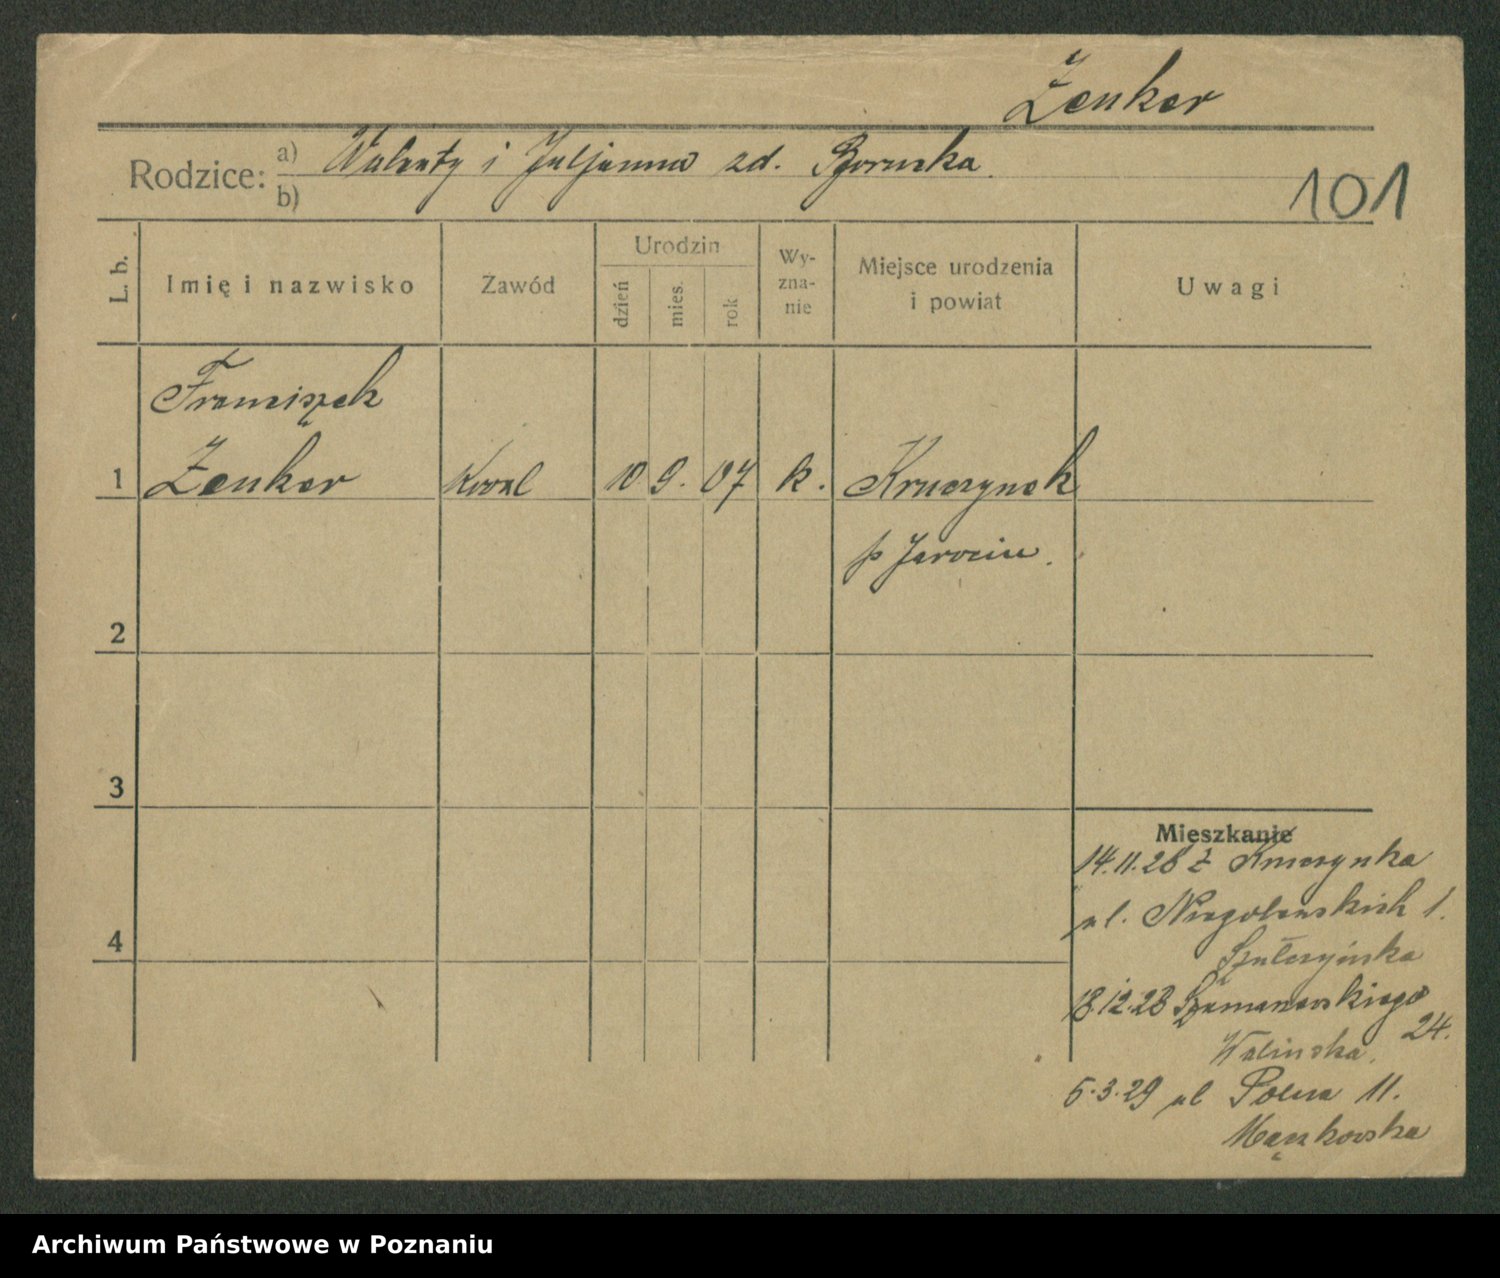 Żenker
Rodzice: a) Walenty i Juljanna zd.
b)
101
L. b.
Imię i nazwisko
Zawód
Urodzin
dzień
mies.
rok
Wy-
zna-
nie
Miejsce urodzenia
i powiat
Uwagi
Franciszek
1 Żenker Kował 10 9. 07 k. Kruczynek
p Jarocin.
2
3
4
Mieszkanie
14.11.28 z Kruczynka
ul. Niegolewskich 1.
Szułczyńska
18.12.28 Szamarzewskiego
24.
Walinska.
5.3.29 ul Polna 11.
Mączkowska
Archiwum Państwowe w Poznaniu